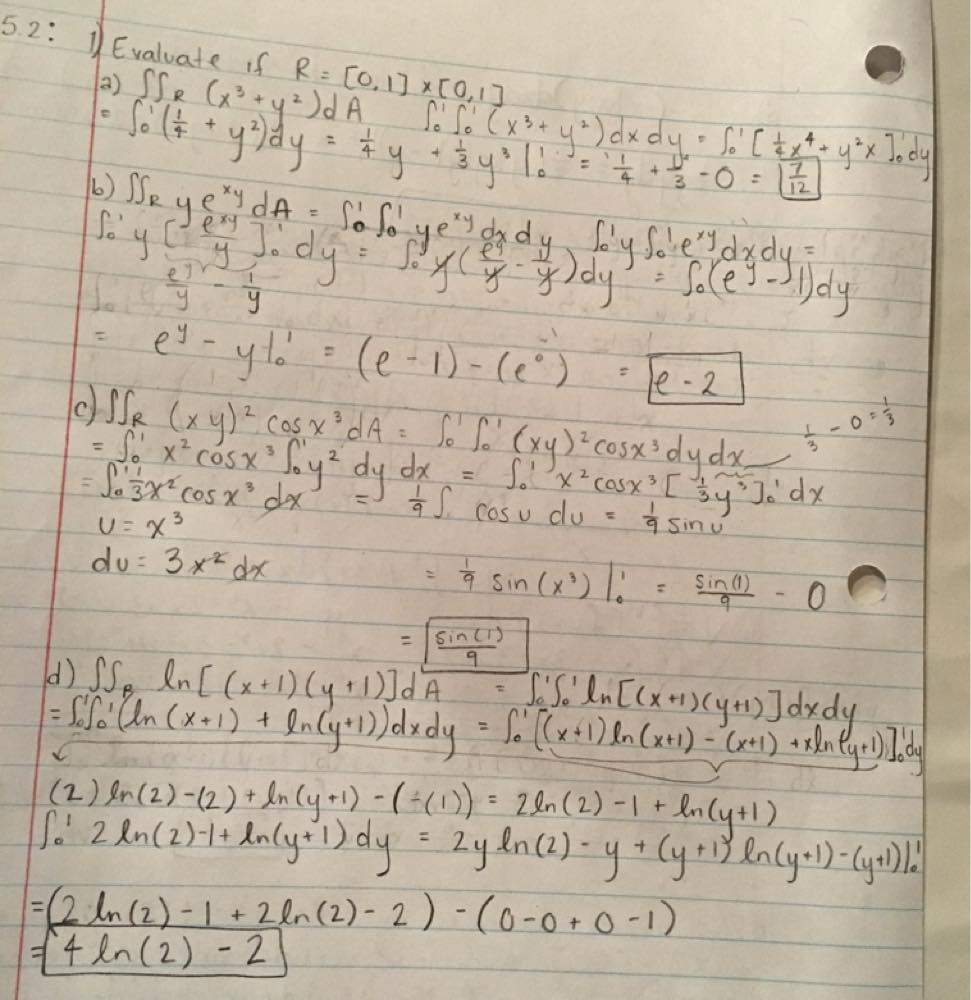 5.2: 1) Evaluate if R = [0,1] × [0,1]
a) ∫∫_R (x³ + y²)dA   ∫₀¹ ∫₀¹ (x³ + y²)dx dy = ∫₀¹ [¼x⁴ + y²x]₀¹ dy
= ∫₀¹ (¼ + y²)dy = ¼y + ⅓y³ |₀¹ = ¼ + ⅓ - 0 = 7/12
b) ∫∫_R y e^{xy} dA = ∫₀¹ ∫₀¹ y e^{xy} dx dy   ∫₀¹ y ∫₀¹ e^{xy} dx dy =
∫₀¹ y [e^{xy}/y]₀¹ dy = ∫₀¹ y(e^y/y - 1/y)dy = ∫₀¹ (e^y - 1)dy
e^y/y - 1/y
= e^y - y |₀¹ = (e - 1) - (e⁰) = e - 2
c) ∫∫_R (xy)² cos x³ dA = ∫₀¹ ∫₀¹ (xy)² cos x³ dy dx   ⅓ - 0 = ⅓
= ∫₀¹ x² cos x³ ∫₀¹ y² dy dx = ∫₀¹ x² cos x³ [⅓y³]₀¹ dx
= ∫₀¹ ⅓x² cos x³ dx = 1/9 ∫ cos u du = 1/9 sin u
u = x³
du = 3x² dx   = 1/9 sin(x³) |₀¹ = sin(1)/9 - 0
= sin(1)/9
d) ∫∫_R ln[(x+1)(y+1)]dA = ∫₀¹ ∫₀¹ ln[(x+1)(y+1)]dx dy
= ∫₀¹ ∫₀¹ (ln(x+1) + ln(y+1))dx dy = ∫₀¹ [(x+1)ln(x+1) - (x+1) + x ln(y+1)]₀¹ dy
(2)ln(2) - (2) + ln(y+1) - (-(1)) = 2ln(2) - 1 + ln(y+1)
∫₀¹ 2 ln(2) - 1 + ln(y+1) dy = 2y ln(2) - y + (y+1) ln(y+1) - (y+1) |₀¹
= (2 ln(2) - 1 + 2 ln(2) - 2) - (0 - 0 + 0 - 1)
= 4 ln(2) - 2